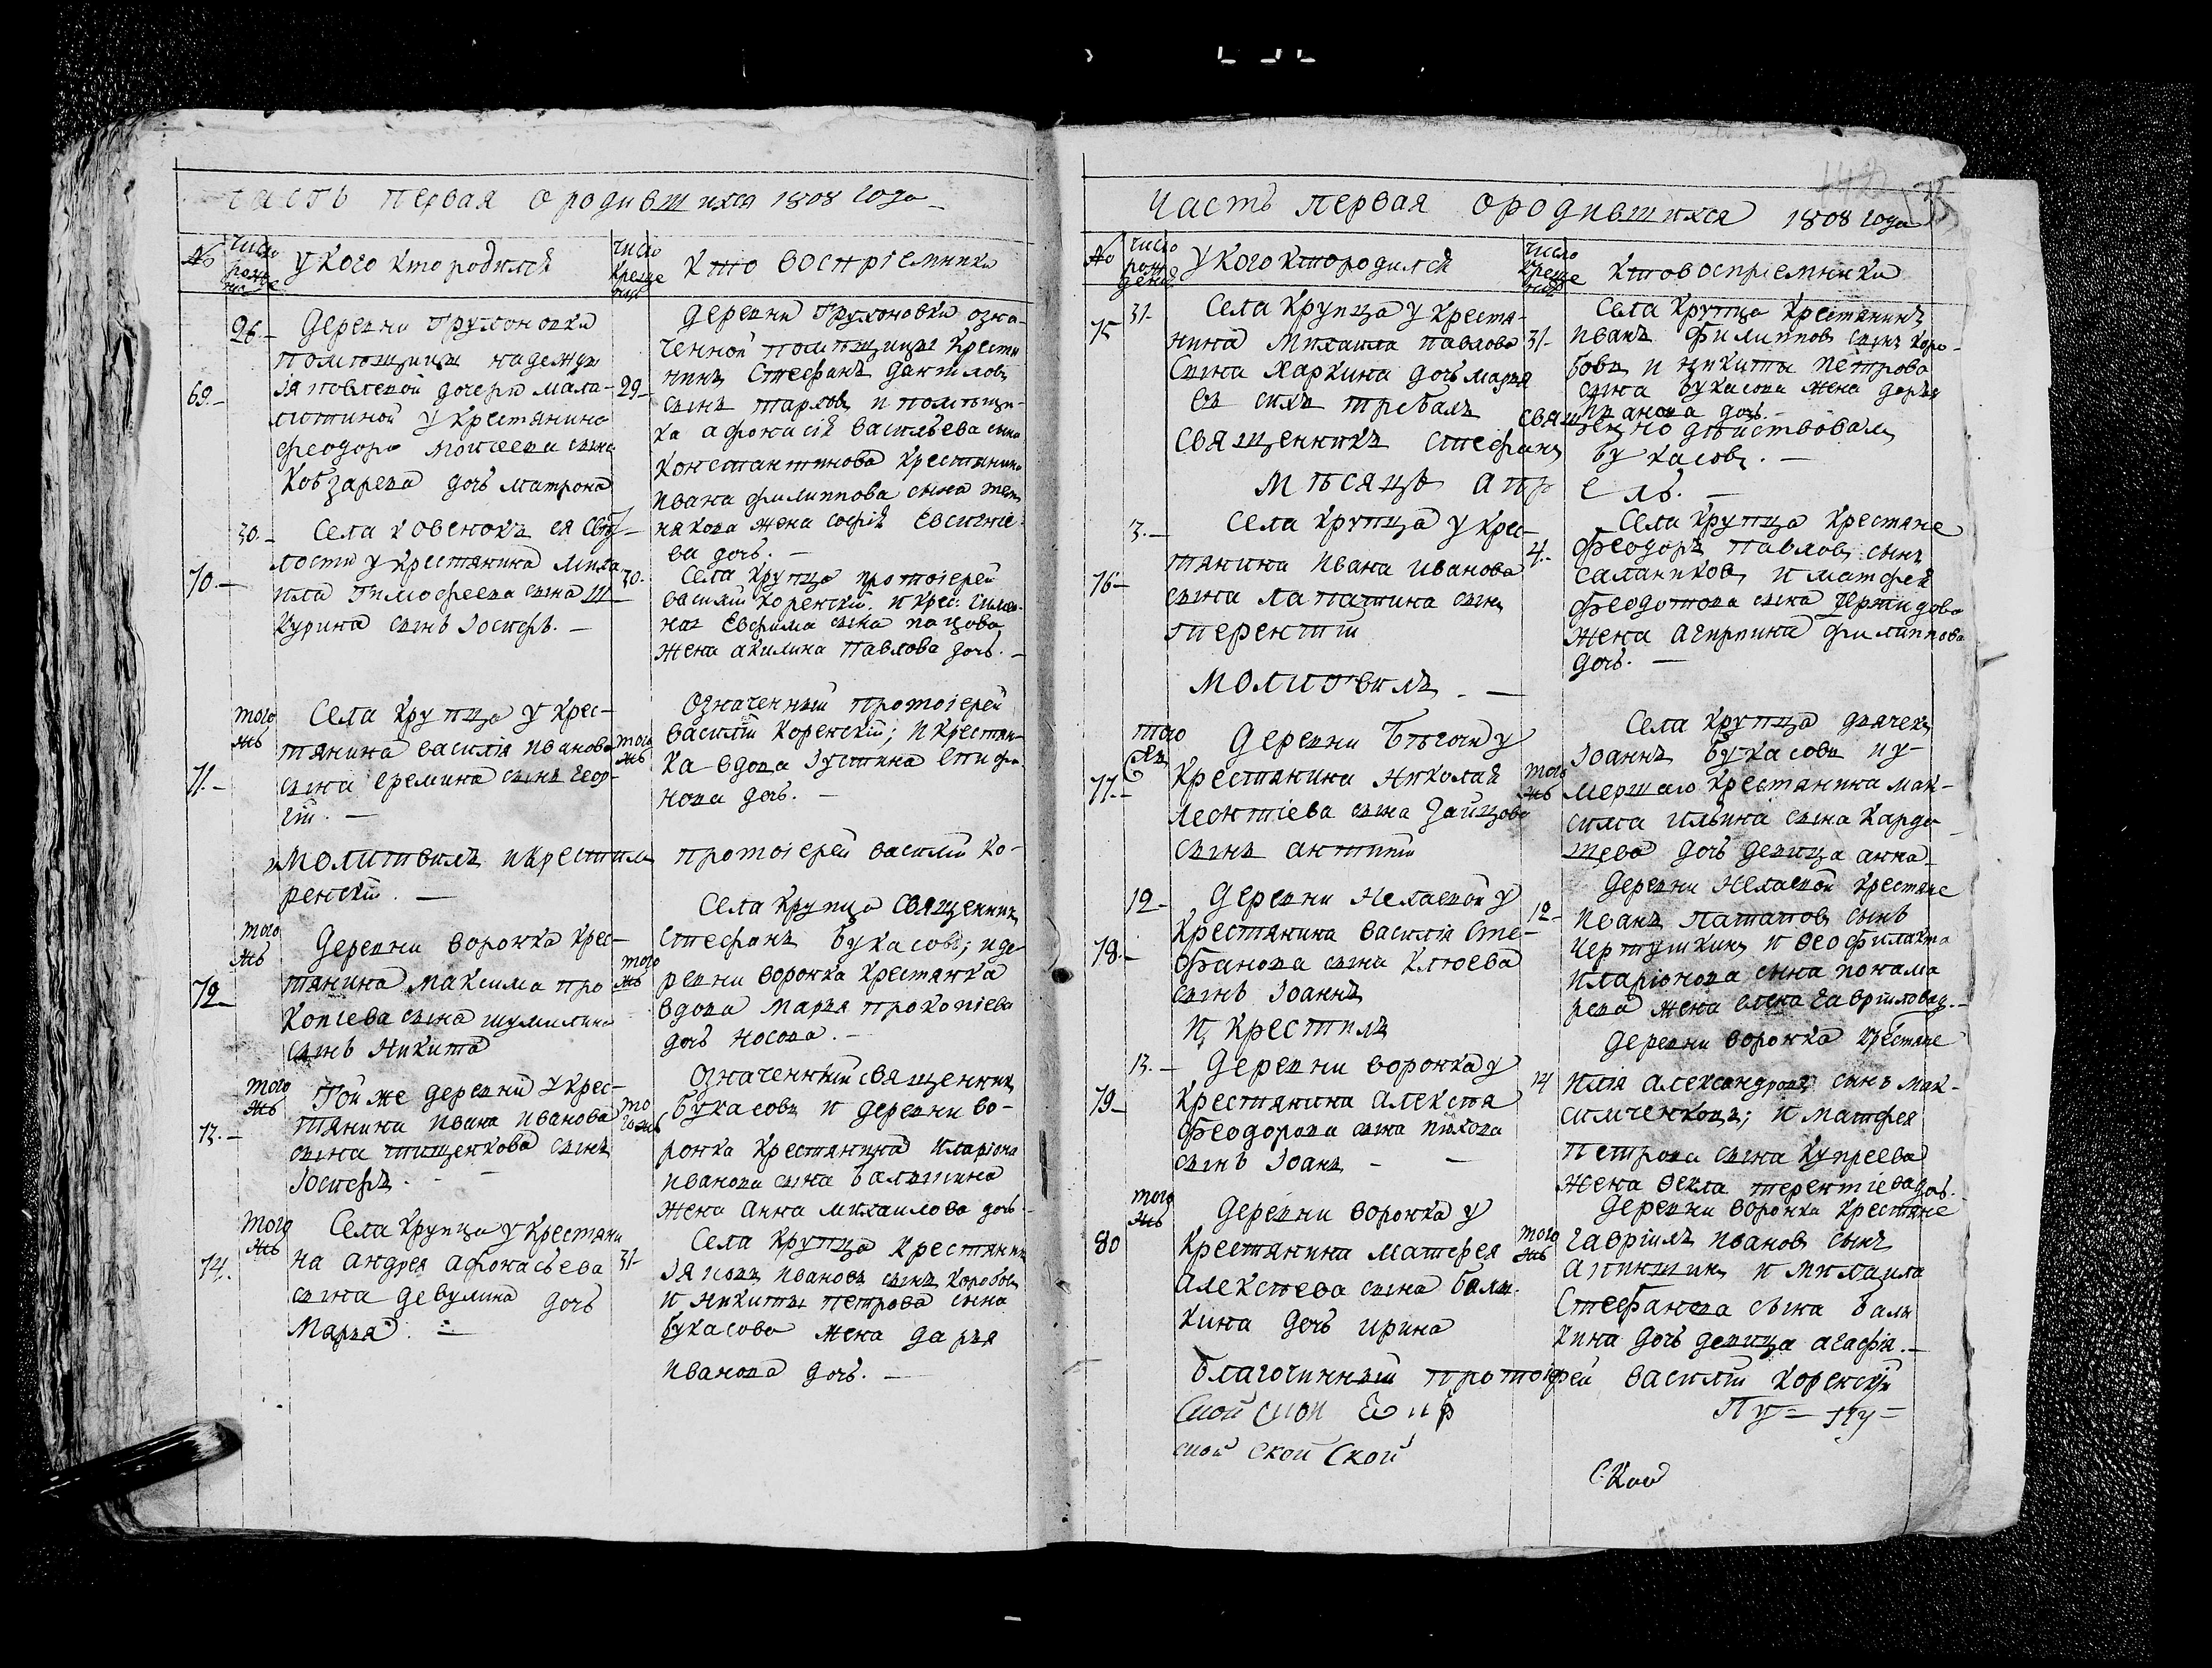 часть первая о родившихся 1808 года
№
число рожде ния
у кого кто родился
число креще ния
кто восприемники
69.
26.
Деревни Грулоновки
помещицы надежды
яковлевой дочери мала-
у крестянина
феодора моисеева сына
Кобзарева дочь матрона
29
Деревни Грулоновки озна-
ченной помещицы крестя
нинъ Стефанъ даниловъ
сынъ и помещи-
ка афонасія васильева сына
константинова крестянина
ивана филиппова сына
жена софія Евсигніе-
ва дочь.
70
30.
Села ковенокъ ея свѣт-
лости у крестянина миха
ила Тимофеева сына ш
курина сынъ Іосифъ.
30.
Села крупца протоіерей
василій коренскій. и крес:
Евфима сына пацова
жена акилина павлова дочь.
71.
того жъ
Села крупца у крес-
тянина василія иванова
сына еремина сынъ геор-
гій.
того жъ
Означенный протоіерей
василій коренскій; и крестян-
ка вдова Іустина епифа-
нова дочь.
молитвилъ и крестилъ протоіерей василій ко-
ренскій.
72
того жъ
Деревни ворожка крес-
тянина максима про
копіева сына шумилина
сынъ никита
того жъ
Села крупца священникъ
стефанъ букасовъ; и де-
ревни ворожка крестянка
вдова марья прокопіева
дочь носова.
73.
того жъ
Той же деревни у крес-
тянина ивана иванова
сына тищенкова сынъ
Іосифъ.
то гожъ
Означенный священникъ
букасовъ и деревни во-
рожка крестянина иларіона
иванова сына балышина
жена анна михаилова дочь
74.
того жъ
Села крупца у крестяни
на андрея афонасьева
сына девулина дочь
Марья.
31
Села крупца крестянинъ
яковъ ивановъ сынъ коробовъ
и никиты петрова сына
букасова жена дарья
иванова дочь.
Часть первая о родившихся 1808 года
№
число рож дения
у кого кто родился
число креще ния
кто восприемники
75
31
Села крупца у крестя-
нина михаила павлова
сына харкина дочь марья
31
Села крупца крестянинъ
иванъ филипповъ сынъ коро-
бовъ и никиты петрова
сына букасова жена дарья
иванова дочь.
въ сихъ требахъ священнодѣйствовалъ
священникъ стефанъ букасовъ.
мѣсяцъ апр ель.
76
3.
Села крупца у крес-
тянина ивана иванова
сына лапатина сынъ
терентій
4.
Села крупца крестяне
феодоръ павловъ сынъ
саланиковъ и матфея
феодотова сына
жена агирпина филиппова
дочь.
молитвилъ.
77.
того жъ
Деревни Бѣгочи у
крестянина николая
леонтіева сына зайцова
сынъ антипій
того жъ
Села крупца дьячекъ
Іоаннъ букасовъ и у-
мершаго крестянина мак-
сима ильина сына карда-
шева дочь девица анна
78.
12
Деревни Нелаевой у
крестянина василія сте-
фанова сына клюева
сынъ Іоаннъ
12
Деревни Нелаевой крестяне
иванъ сынъ
и Феофилакта
иларіонова сына понама
рева жена елена гавріиловад.
и крестилъ
79
13.
Деревни ворожка у
крестянина алексѣя
феодорова сына
сынъ Іоанъ
14
Деревни ворожка крестяне
илія александровъ сынъ мак-
симченковъ; и матфея
петрова сына купреева
жена Фекла терентіевадоч.
80
того жъ
Деревни ворожка у
крестянина матфея
алексѣева сына балы-
кина дочь ирина
того жъ
Деревни ворожка крестяне
гавріилъ ивановъ сынъ
и михаила
стефанова сына балы
кина дочь девица агафія.
Благочинный протоіерей василій коренскій